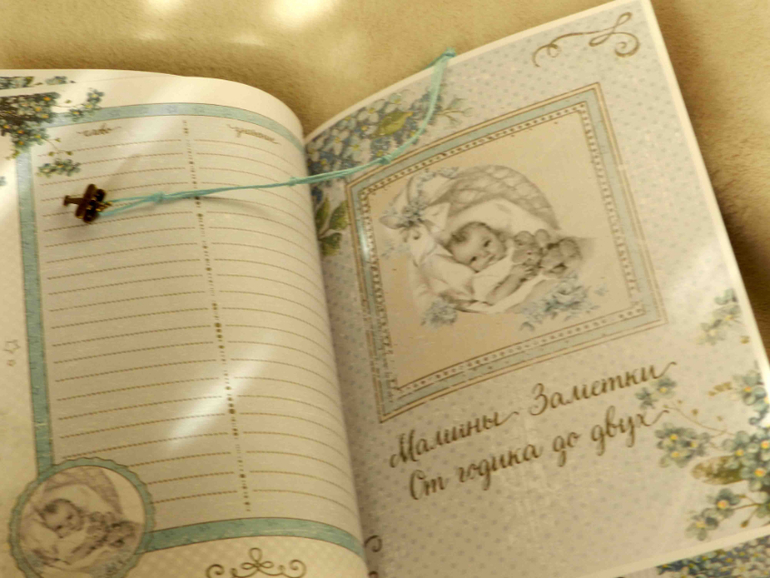 Мамины Заметки
От годика до двух